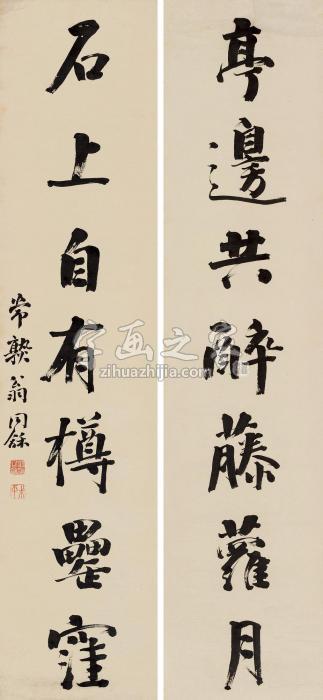 亭邊共醉藤蘿月
石上自有樽罍窪
常熟翁同龢
字画之家
zihuazhijia.com
zihuazhijia.com